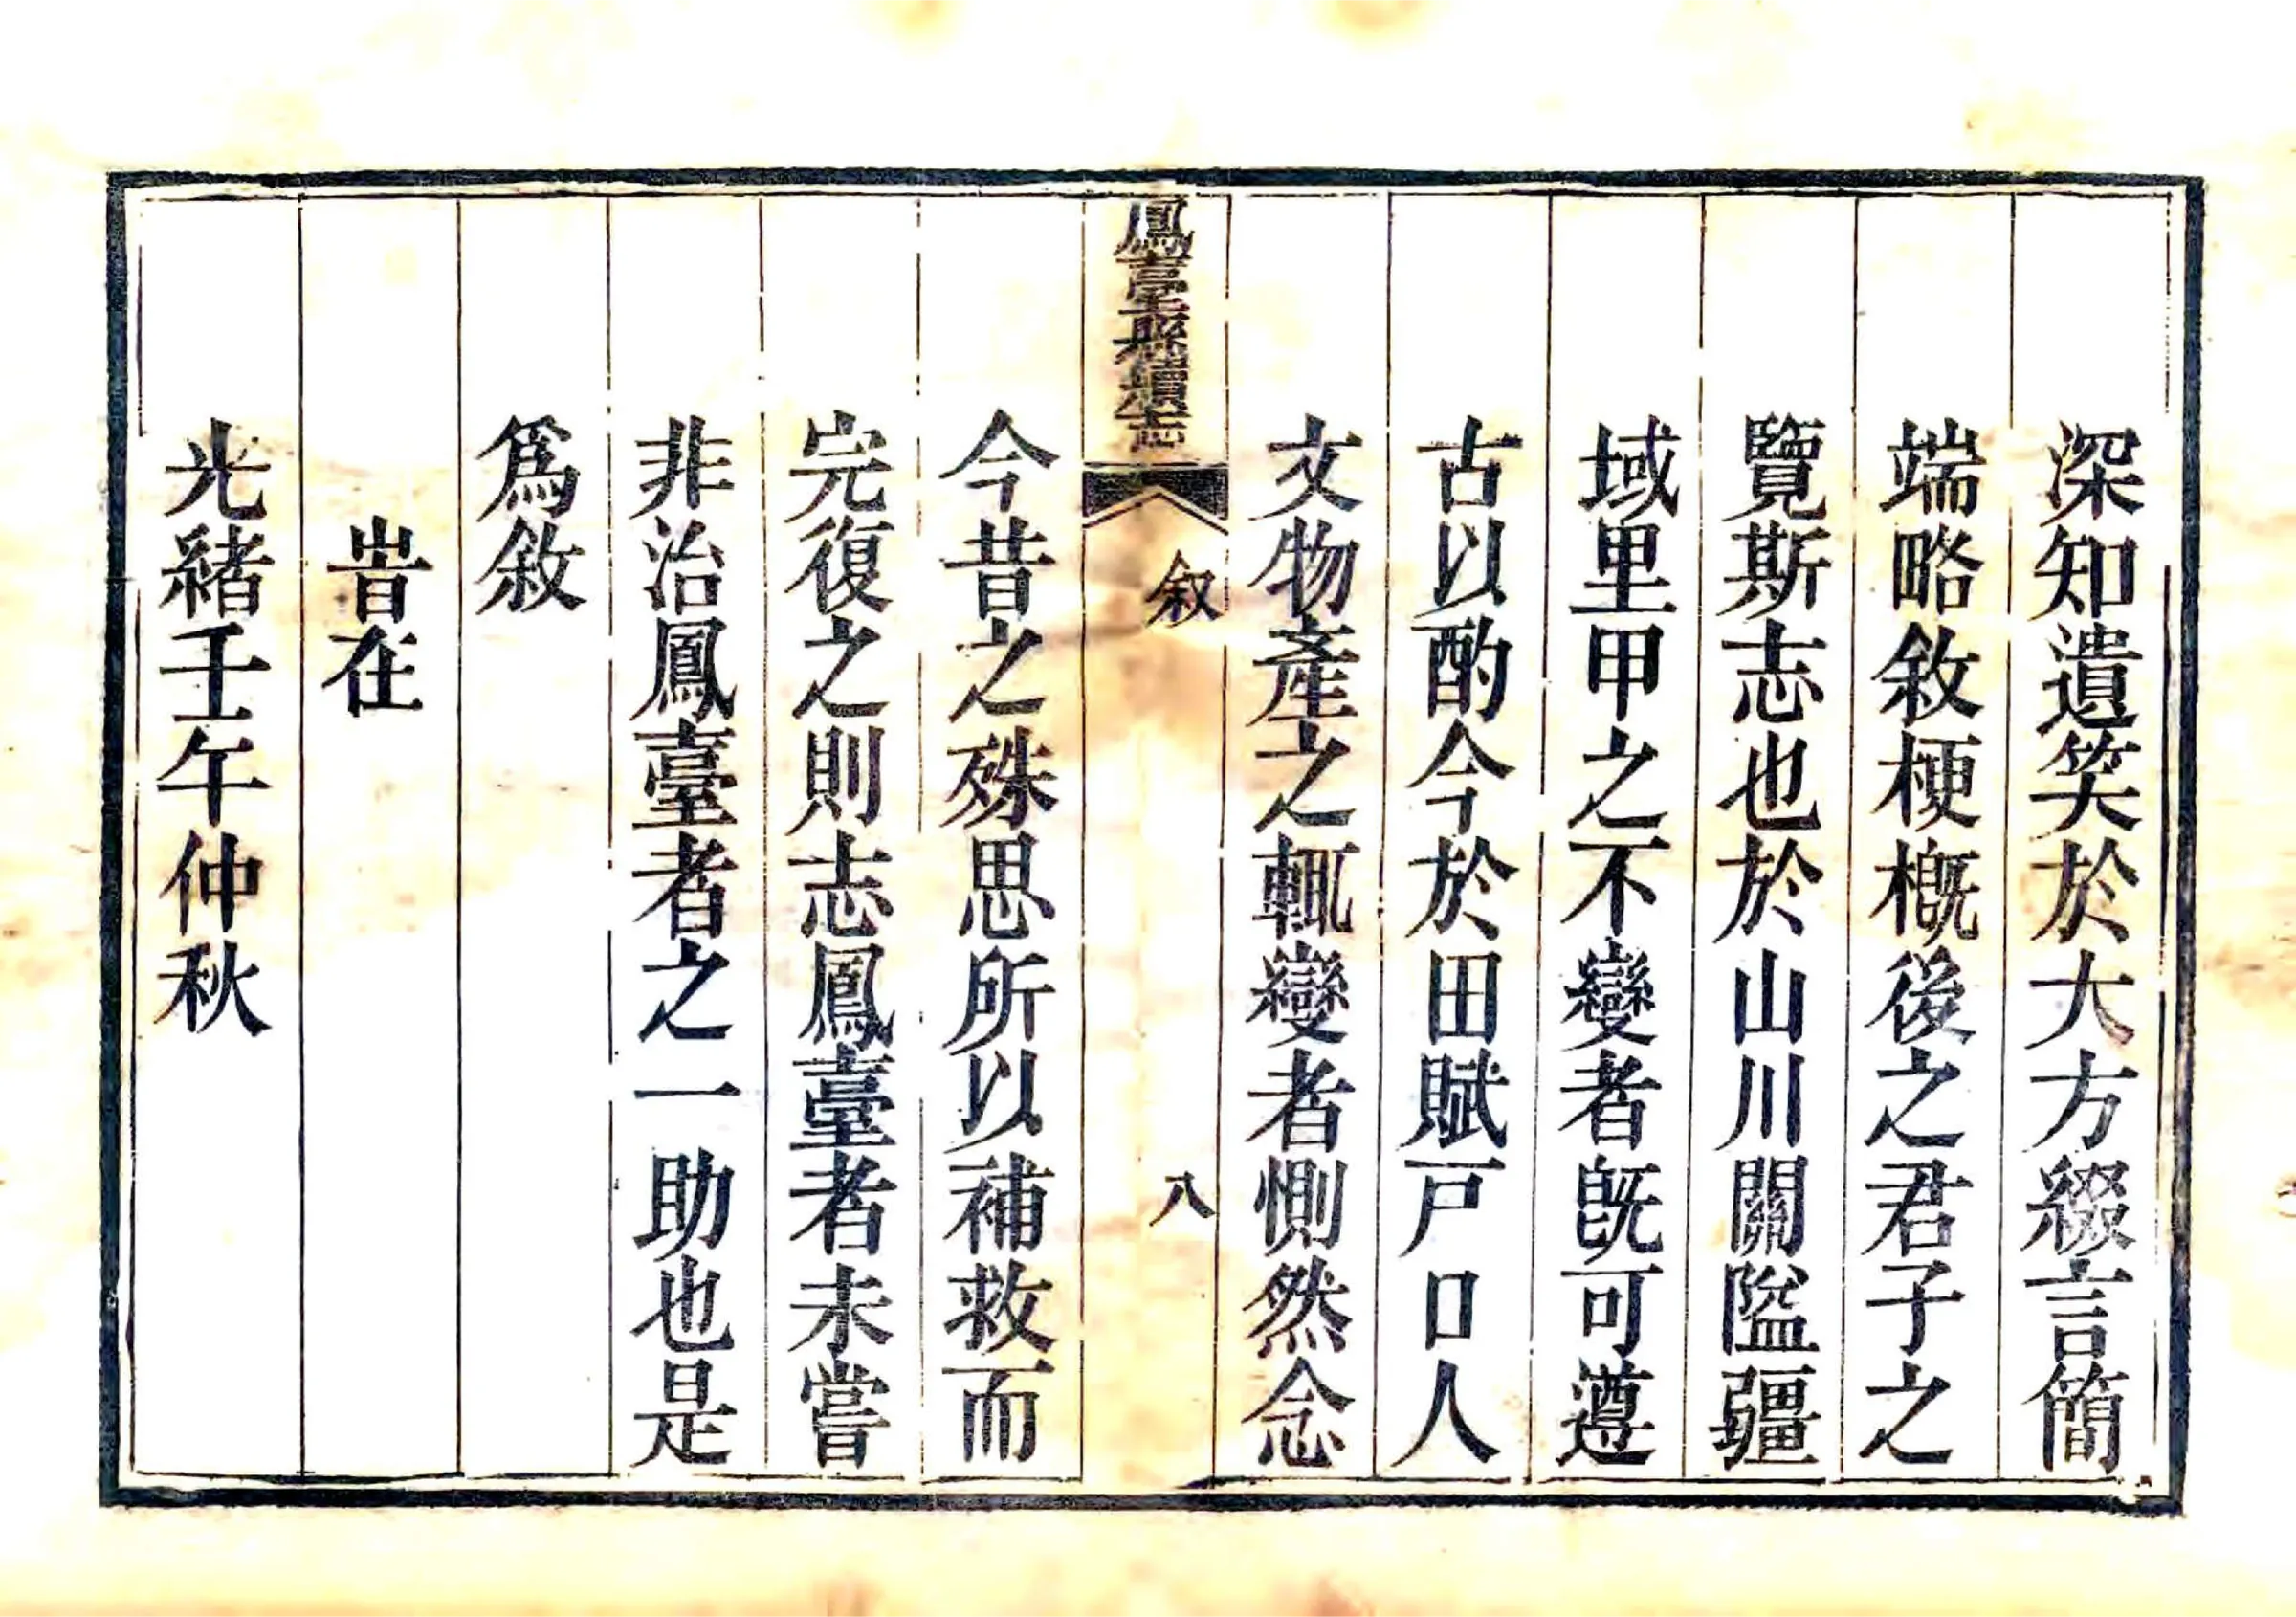 深知遺笑於大方綴言簡
端略敘梗槪後之君子之
覽斯志也於山川關隘疆
域里甲之不變者旣可遵
古以酌今於田賦戸口人
文物產之輒變者惻然念
鳳臺縣續志
叙
八
今昔之殊思所以補救而
完復之則志鳳臺者未嘗
非治鳳臺者之一助也是
爲敘
旹在
光緒壬午仲秋